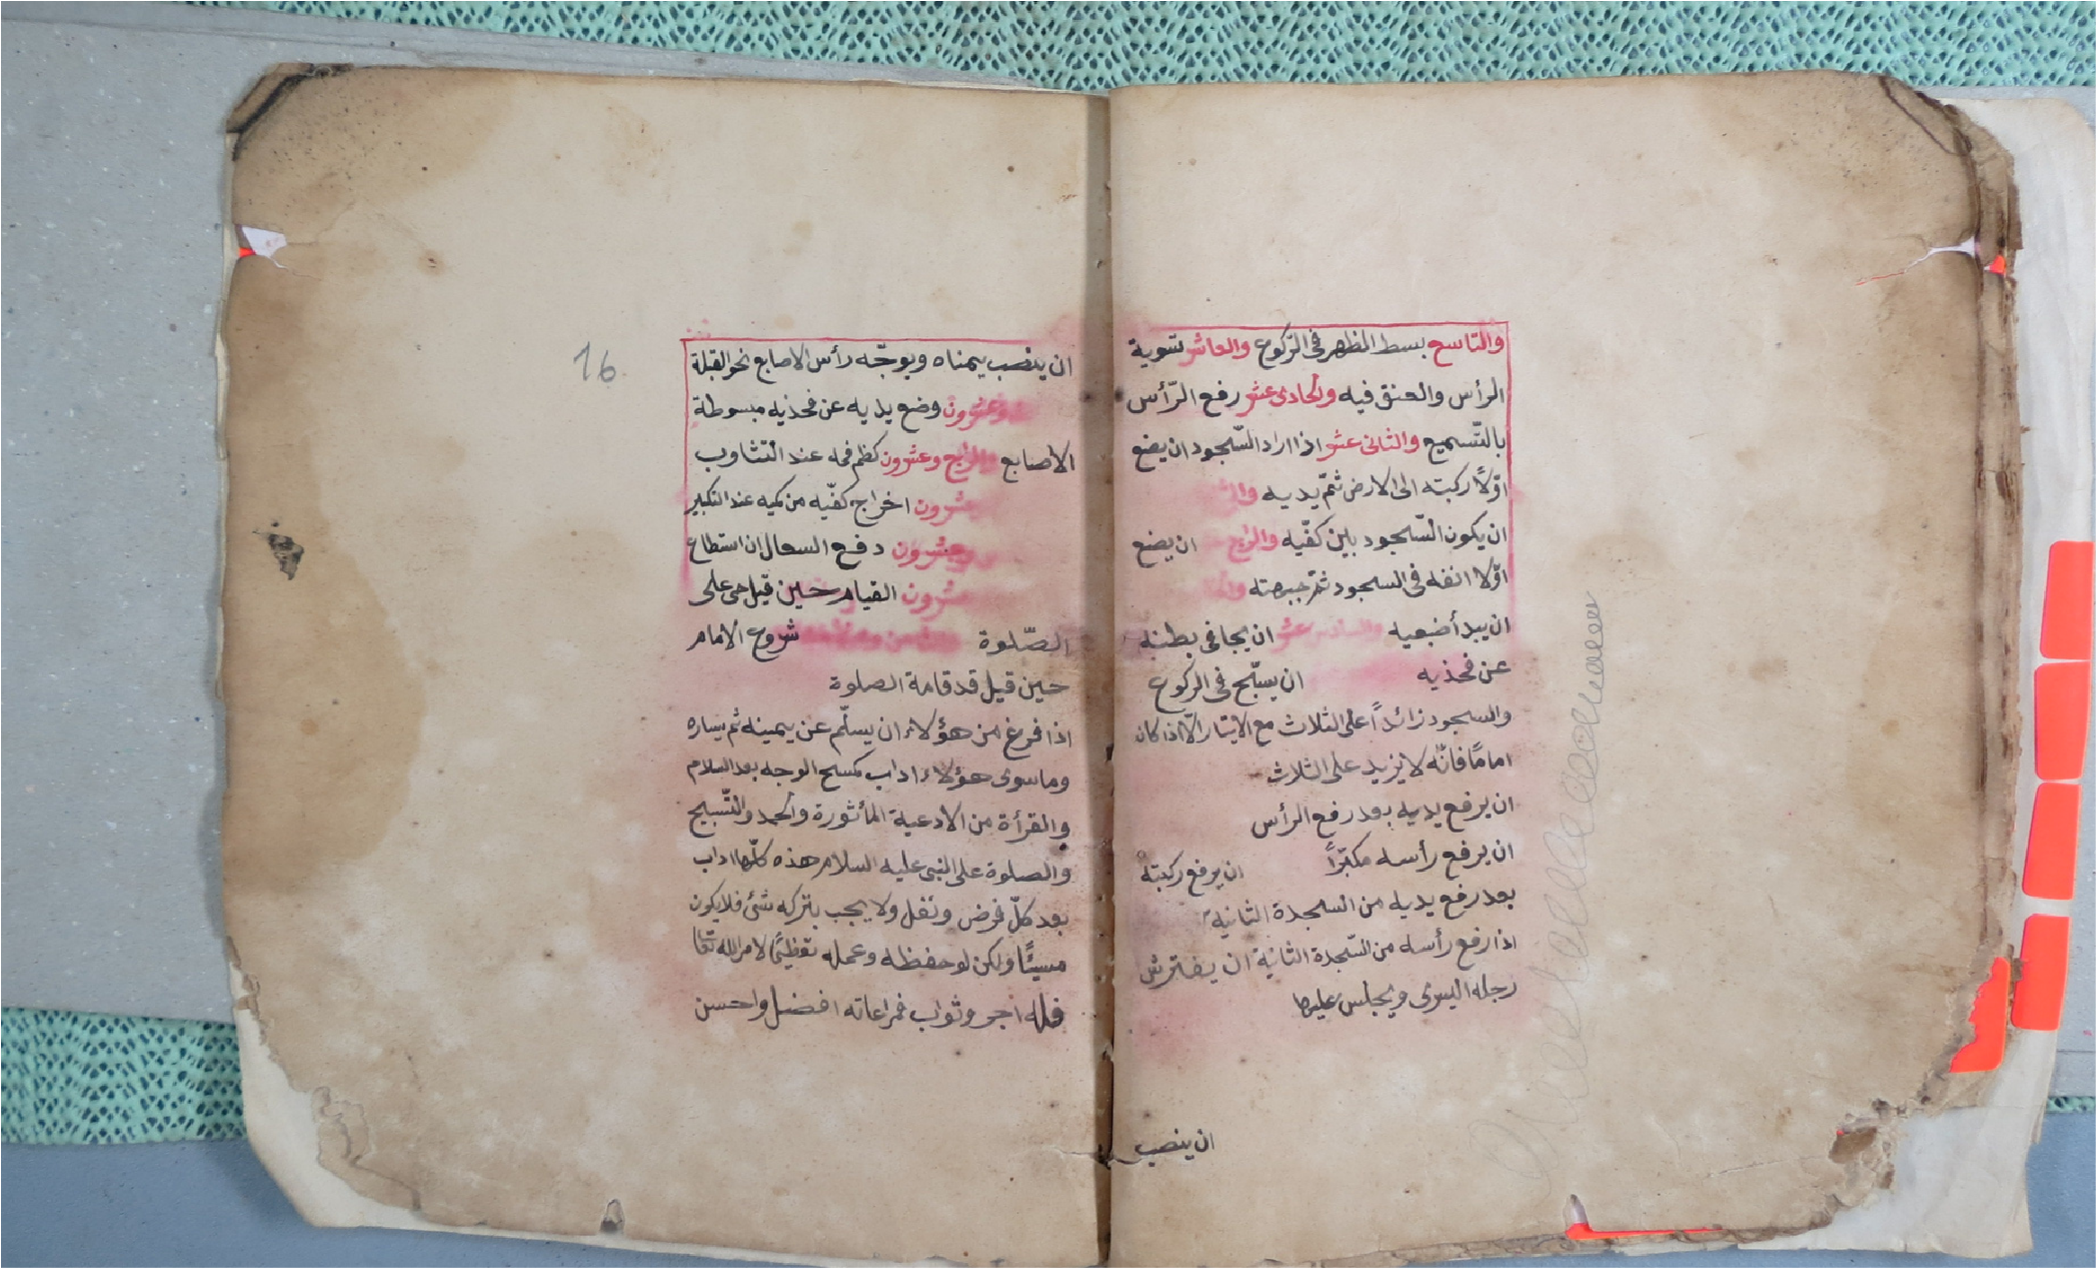 والتاسع بسط الظهر فى الرّكوع والعاشر تسوية
الرأس والعنق فيه والحادى عشر رفع الرّأس
بالتّسميع والثانى عشر اذا اراد السّجود ان يضع
اوّلاً ركبته الى الارض ثمّ يديه
ان يكون السّجود بين كفّيه والرابع ان يضع
اوّلا انفه فى السجود ثمّ جبهته
ان يبدأ ضبعيه والسادس عشر ان يجافى بطنه
عن فخذيه ان يسبّح فى الركوع
والسجود زائداً على الثلاث مع الايتار الّا اذا كان
اماماً فانّه لا يزيد على الثلاث
ان يرفع يديه بعد رفع الرأس
ان يرفع رأسه مكبّراً ان يرفع ركبته
بعد رفع يديه من السجدة الثانية
اذا رفع رأسه من السّجدة الثانية ان يفترش
رجله اليسرى ويجلس عليها
ان ينصب
16
ان ينصب يمناه ويوجّه رأس الاصابع نحو القبلة
وعشرون وضع يديه عن فخذيه مبسوطة
الاصابع والرابع وعشرون كظم فمه عند التثاوب
عشرون اخراج كفّيه من كميه عند التكبير
وعشرون دفع السعال ان استطاع
عشرون القيام حين قيل حى على
الصّلوة شروع الامام
حين قيل قد قامة الصلوة
اذا فرغ من هؤلاء ان يسلّم عن يمينه ثم يساره
وما سوى هؤلاء اداب كمسح الوجه بعد السلام
والقرأة من الادعية المأثورة والحمد والتّسبيح
والصلوة على النبى عليه السلام هذه كلّها اداب
بعد كلّ فرض ونفل ولا يجب بتركه شئ فلا يكون
مسيئًا ولكن لو حفظه وعمله تعظيمًا لامر الله تعا
فله اجر وثواب فمراعاته افضل واحسن